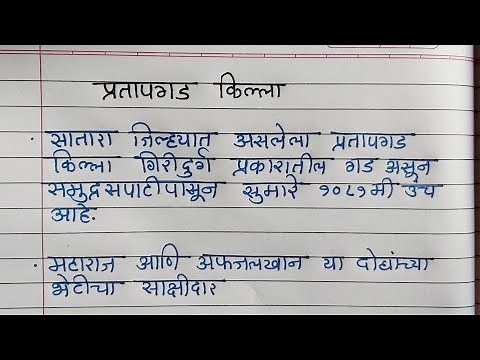 प्रतापगड किल्ला
· सातारा जिल्ह्यात असलेला प्रतापगड
किल्ला गिरीदुर्ग प्रकारातील गड असून
समुद्रसपाटीपासून सुमारे १०८१मी उंच
आहे.
· महाराज आणि अफजलखान या दोघांच्या
भेटीचा साक्षीदार